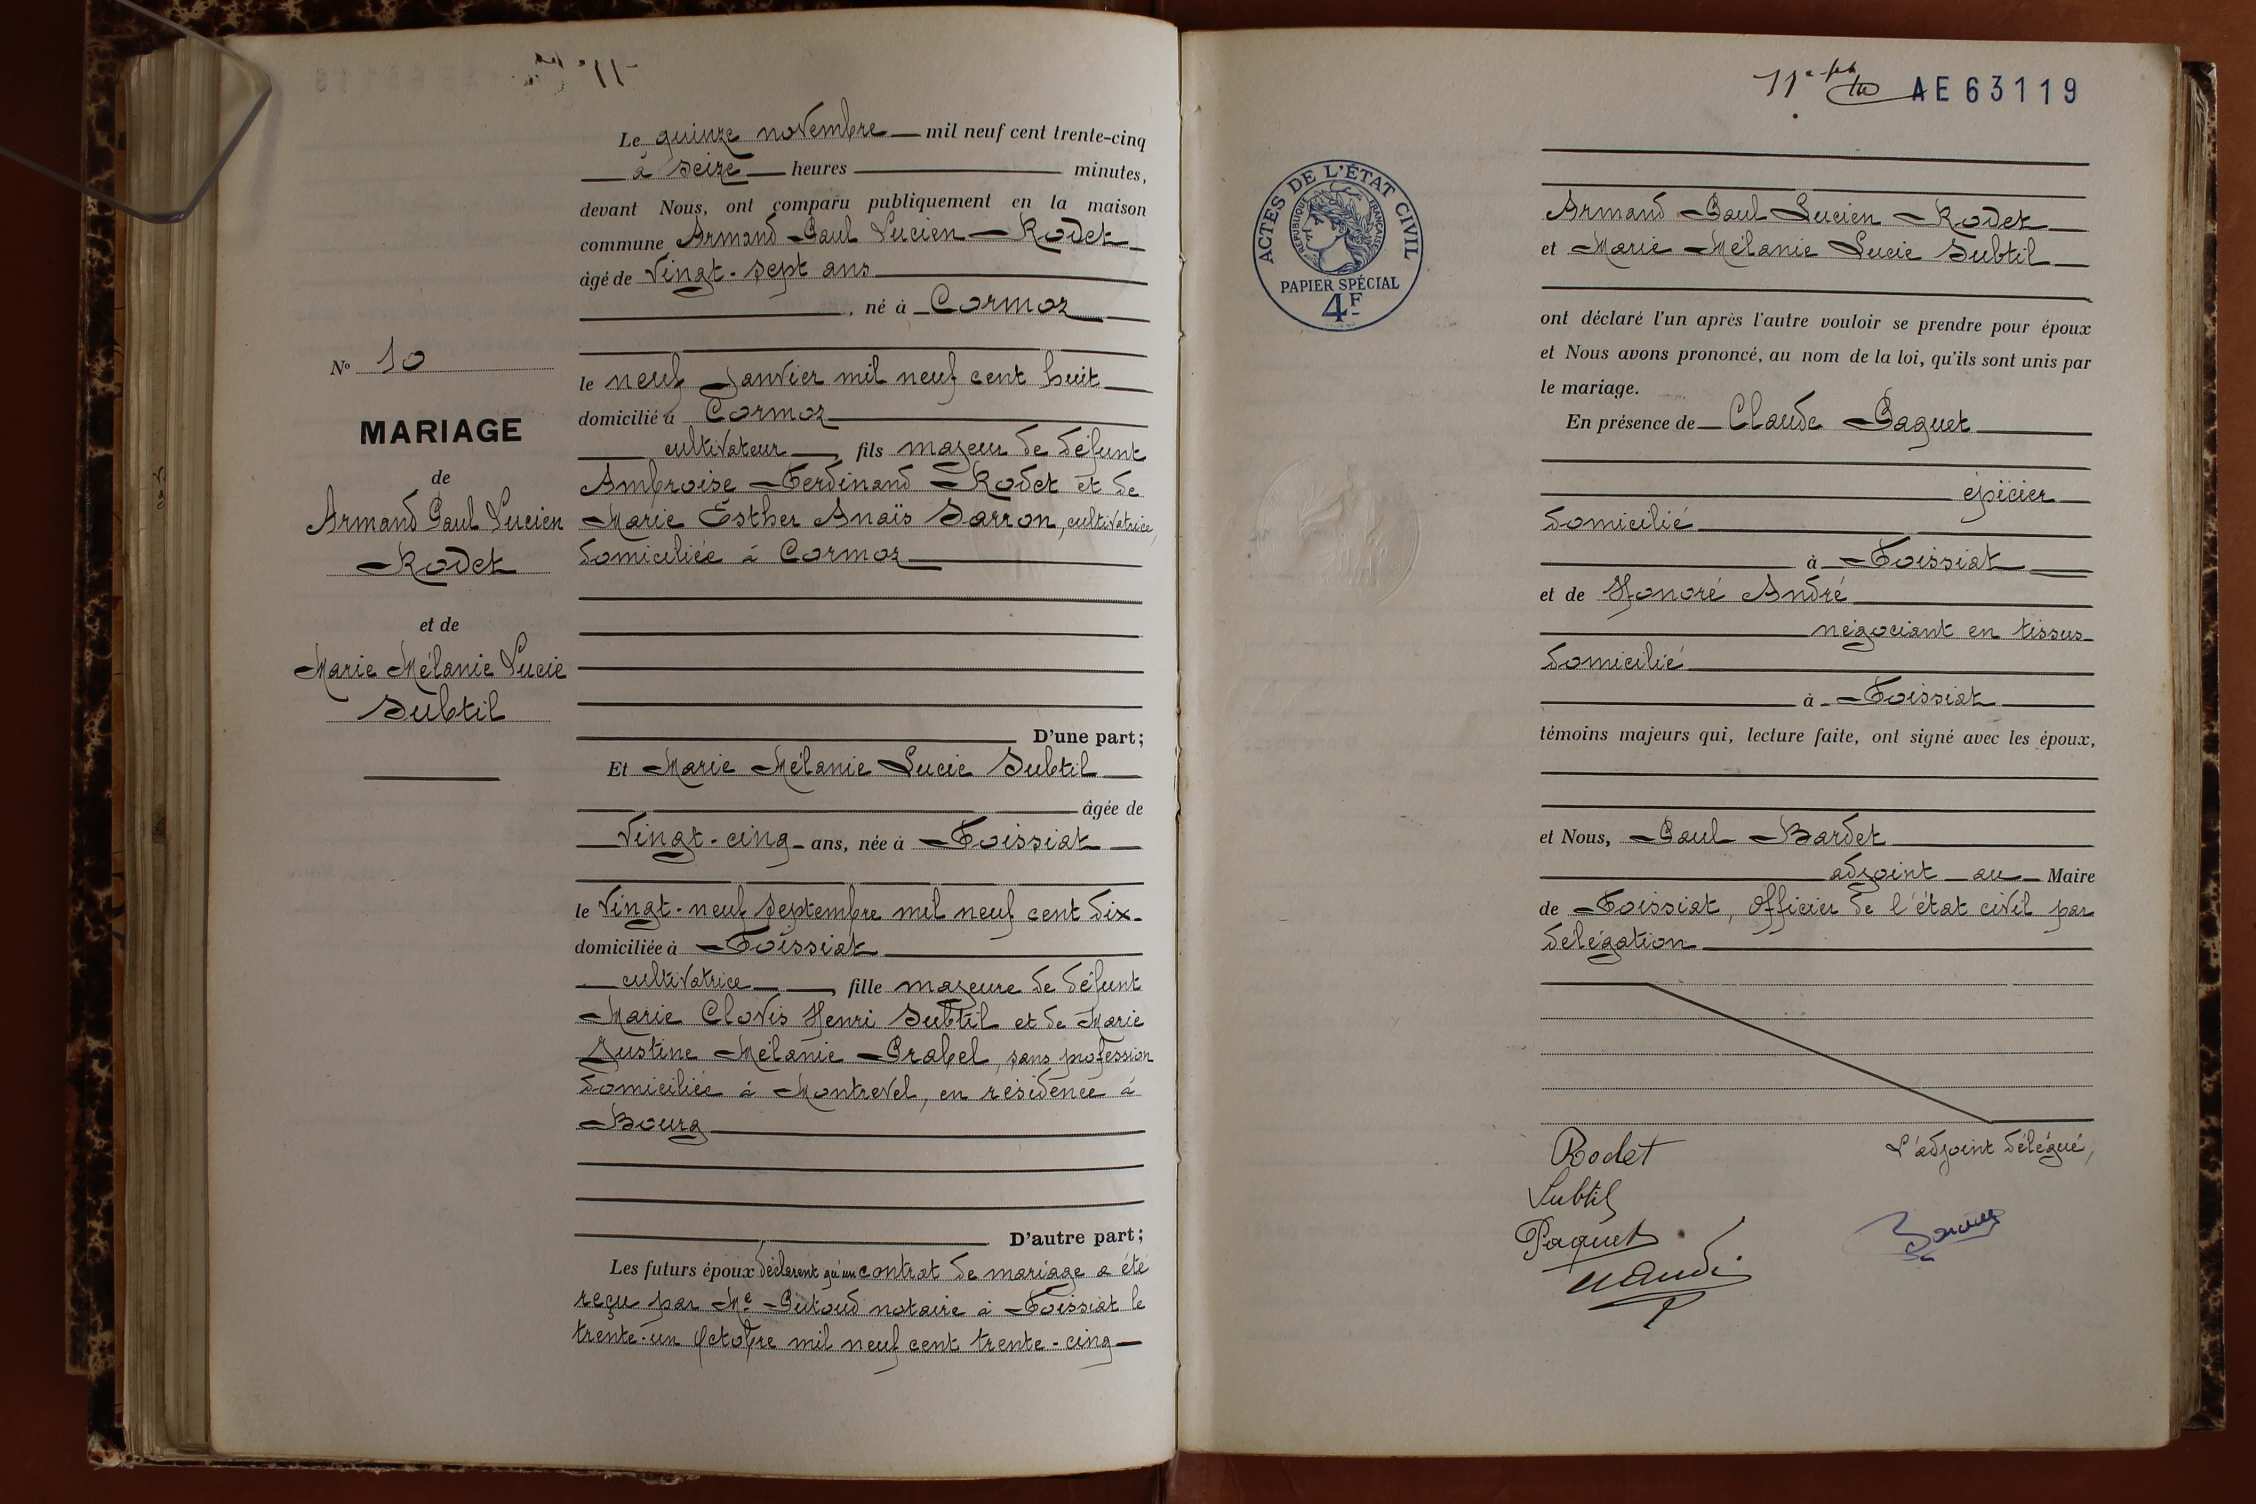 Le quinze novembre mil neuf cent trente-cinq
à seize heures minutes,
devant Nous, ont comparu publiquement en la maison
commune Armand Paul Lucien Rodet
âgé de vingt-sept ans
, né à Cormoz
le neuf Janvier mil neuf cent huit
domicilié à Cormoz
cultivateur, fils majeur de défunt
Ambroise Ferdinand Rodet et de
Marie Esther Anaïs Sarron, cultivatrice,
domiciliée à Cormoz
D'une part;
Et Marie Mélanie Lucie Subtil
âgée de
vingt-cinq ans, née à Foissiat
le vingt-neuf Septembre mil neuf cent dix
domiciliée à Foissiat
cultivatrice, fille majeure de défunt
Marie Clovis Henri Subtil et de Marie
Justine Mélanie Prabel, sans profession
domiciliée à Montrevel, en résidence à
Bourg
D'autre part;
Les futurs époux déclarent qu'un contrat de mariage a été
reçu par Me Putoud notaire à Foissiat le
trente-un Octobre mil neuf cent trente-cinq
No 10
MARIAGE
de
Armand Paul Lucien
Rodet
et de
Marie Mélanie Lucie
Subtil
11e
AE63119
ACTES DE L'ÉTAT CIVIL
RÉPUBLIQUE FRANÇAISE
PAPIER SPÉCIAL
4F
Armand Paul Lucien Rodet
et Marie Mélanie Lucie Subtil
ont déclaré l'un après l'autre vouloir se prendre pour époux
et Nous avons prononcé, au nom de la loi, qu'ils sont unis par
le mariage.
En présence de Claude Paquet
épicier
domicilié
à Foissiat
et de Honoré André
négociant en tissus
domicilié
à Foissiat
témoins majeurs qui, lecture faite, ont signé avec les époux,
et Nous, Paul Bardet
adjoint au Maire
de Foissiat, Officier de l'état civil par
délégation
Rodet
L'adjoint délégué,
Subtil
Paquet